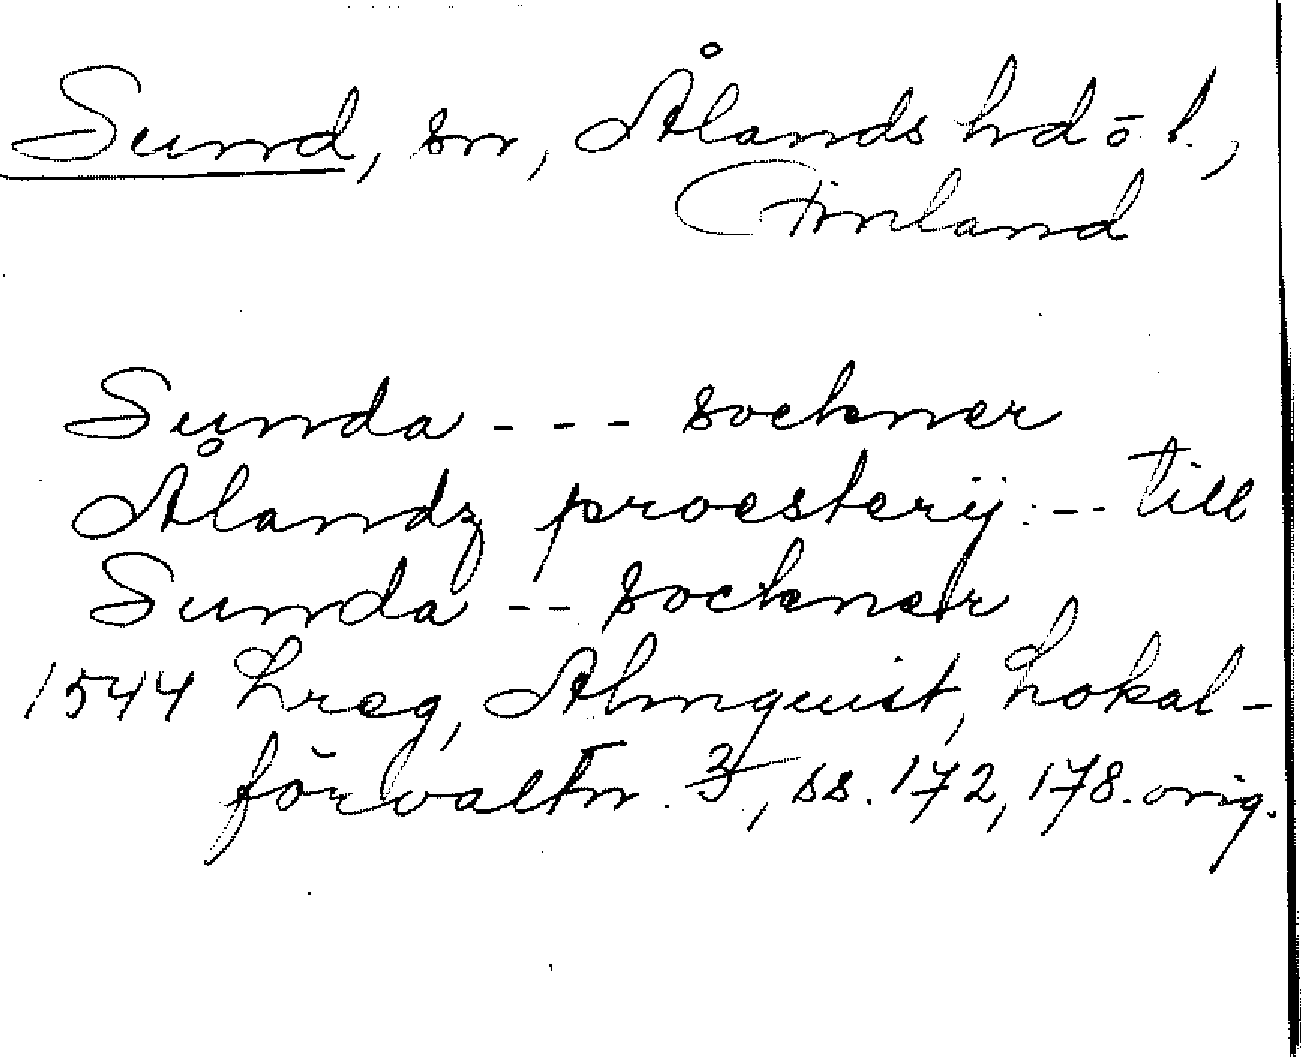 Sund, sn, Ålands hd o. l.,
Finland
Sunda - - - sockner
Ålandz proesterij - - till
Sunda - - sockner
1544 Lreg, Almquist, Lokal-
förvaltn. 3, ss. 172, 178. orig.